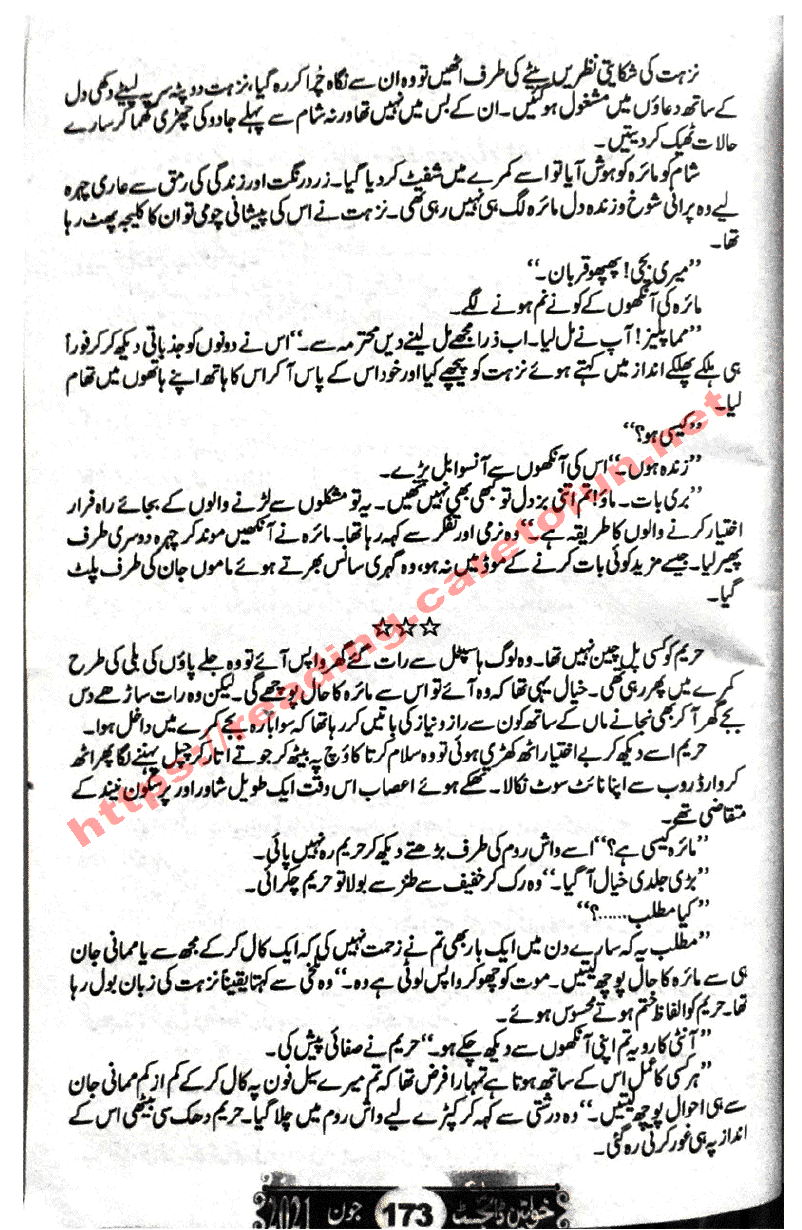 نزہت کی شکایتی نظریں بیٹے کی طرف اٹھیں تو وہ ان سے نگاہ چُرا کر رہ گیا، نزہت دوپٹہ سر پہ لپیٹے دکھی دل
کے ساتھ دعاؤں میں مشغول ہو گئیں۔ ان کے بس میں نہیں تھا ورنہ شام سے پہلے جادو کی چھڑی گھما کر سارے
حالات ٹھیک کر دیتیں۔
شام کو مائرہ کو ہوش آیا تو اسے کمرے میں شفیٹ کر دیا گیا۔ زرد رنگت اور زندگی کی رمق سے عاری چہرہ
لیے وہ پرانی شوخ و زندہ دل مائرہ لگ ہی نہیں رہی تھی۔ نزہت نے اس کی پیشانی چومی تو ان کا کلیجہ پھٹ رہا
تھا۔
”میری بچی! پھپھو قربان۔“
مائرہ کی آنکھوں کے کونے نم ہونے لگے۔
”مما پلیز! آپ نے مل لیا۔ اب ذرا مجھے مل لینے دیں محترمہ سے۔“ اس نے دونوں کو جذباتی دیکھ کر فوراً
ہی ہلکے پھلکے انداز میں کہتے ہوئے نزہت کو پیچھے کیا اور خود اس کے پاس آ کر اس کا ہاتھ اپنے ہاتھوں میں تھام
لیا۔
”کیسی ہو؟“
”زندہ ہوں۔“ اس کی آنکھوں سے آنسو ابل پڑے۔
”بری بات۔ ماؤ! تم اتنی بزدل تو کبھی بھی نہیں تھیں۔ یہ تو مشکلوں سے لڑنے والوں کے بجائے راہ فرار
اختیار کرنے والوں کا طریقہ ہے۔“ وہ نرمی اور تفکر سے کہہ رہا تھا۔ مائرہ نے آنکھیں موند کر چہرہ دوسری طرف
پھیر لیا۔ جیسے مزید کوئی بات کرنے کے موڈ میں نہ ہو، وہ گہری سانس بھرتے ہوئے ماموں جان کی طرف پلٹ
گیا۔
☆☆☆
حریم کو کسی پل چین نہیں تھا۔ وہ لوگ ہاسپٹل سے رات گئے گھر واپس آئے تو وہ جلے پاؤں کی بلی کی طرح
کمرے میں پھر رہی تھی۔ خیال یہی تھا کہ وہ آئے تو اس سے مائرہ کا حال پوچھے گی۔ لیکن وہ رات ساڑھے دس
بجے گھر آ کر بھی نجانے ماں کے ساتھ کون سے راز و نیاز کی باتیں کر رہا تھا کہ سوا بارہ بجے کمرے میں داخل ہوا۔
حریم اسے دیکھ کر بے اختیار اٹھ کھڑی ہوئی تو وہ سلام کرتا کاؤچ پہ بیٹھ کر جوتے اتار کر چپل پہننے لگا پھر اٹھ
کر وارڈ روب سے اپنا نائٹ سوٹ نکالا۔ تھکے ہوئے اعصاب اس وقت ایک طویل شاور اور پرسکون نیند کے
متقاضی تھے۔
”مائرہ کیسی ہے؟“ اسے واش روم کی طرف بڑھتے دیکھ کر حریم رہ نہیں پائی۔
”بڑی جلدی خیال آ گیا۔“ وہ رک کر خفیف سے طنز سے بولا تو حریم چکرائی۔
”کیا مطلب......؟“
”مطلب یہ کہ سارے دن میں ایک بار بھی تم نے زحمت نہیں کی کہ ایک کال کر کے مجھ سے یا ممانی جان
ہی سے مائرہ کا حال پوچھ لیتیں۔ موت کو چھو کر واپس لوٹی ہے وہ۔“ وہ تلخی سے کہتا یقیناً نزہت کی زبان بول رہا
تھا۔ حریم کو الفاظ ختم ہوتے محسوس ہوئے۔
”آنٹی کا رویہ تم اپنی آنکھوں سے دیکھ چکے ہو۔“ حریم نے صفائی پیش کی۔
”ہر کسی کا عمل اس کے ساتھ ہوتا ہے تمہارا فرض تھا کہ تم میرے سیل فون پہ کال کر کے کم از کم ممانی جان
سے ہی احوال پوچھ لیتیں۔“ وہ درشتی سے کہہ کر کپڑے لیے واش روم میں چلا گیا۔ حریم دھک سی بیٹھی اس کے
انداز پہ ہی غور کرتی رہ گئی۔
خواتین ڈائجسٹ 173 جون 2021
https://reading.caretofun.net